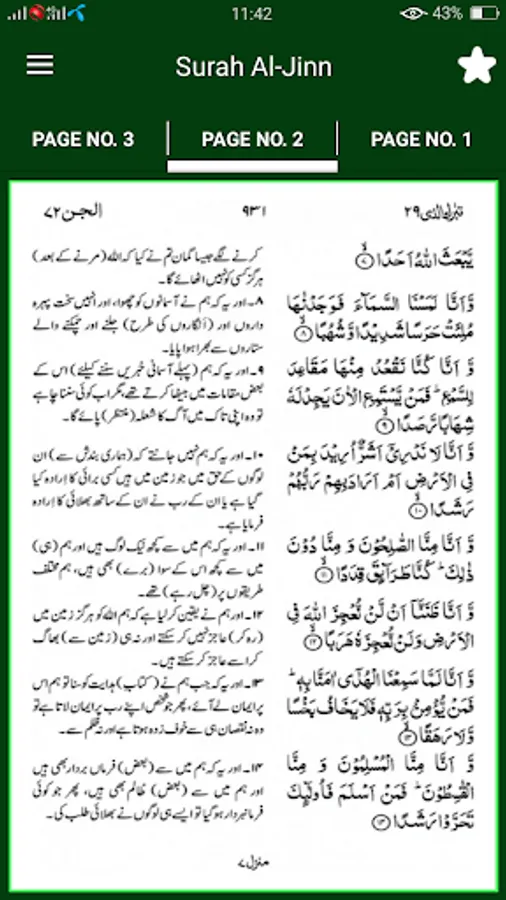 11:42
43%
Surah Al-Jinn
PAGE NO. 3
PAGE NO. 2
PAGE NO. 1
تبٰرك الذى ۲۹ ۹۳۱ الجن ۷۲
يَّبْعَثَ اللّٰهُ اَحَدًا ۝۷
وَّ اَنَّا لَمَسْنَا السَّمَآءَ فَوَجَدْنٰهَا
مُلِئَتْ حَرَسًا شَدِيْدًا وَّ شُهُبًا ۝۸
وَّ اَنَّا كُنَّا نَقْعُدُ مِنْهَا مَقَاعِدَ
لِلسَّمْعِ ؕ فَمَنْ يَّسْتَمِعِ الْاٰنَ يَجِدْ لَهٗ
شِهَابًا رَّصَدًا ۝۹
وَّ اَنَّا لَا نَدْرِيْۤ اَشَرٌّ اُرِيْدَ بِمَنْ
فِي الْاَرْضِ اَمْ اَرَادَ بِهِمْ رَبُّهُمْ
رَشَدًا ۝۱۰
وَّ اَنَّا مِنَّا الصّٰلِحُوْنَ وَ مِنَّا دُوْنَ
ذٰلِكَ ؕ كُنَّا طَرَآىِٕقَ قِدَدًا ۝۱۱
وَّ اَنَّا ظَنَنَّاۤ اَنْ لَّنْ نُّعْجِزَ اللّٰهَ فِي
الْاَرْضِ وَ لَنْ نُّعْجِزَهٗ هَرَبًا ۝۱۲
وَّ اَنَّا لَمَّا سَمِعْنَا الْهُدٰۤى اٰمَنَّا بِهٖ ؕ
فَمَنْ يُّؤْمِنْۢ بِرَبِّهٖ فَلَا يَخَافُ بَخْسًا
وَّ لَا رَهَقًا ۝۱۳
وَّ اَنَّا مِنَّا الْمُسْلِمُوْنَ وَ مِنَّا
الْقٰسِطُوْنَ ؕ فَمَنْ اَسْلَمَ فَاُولٰٓىِٕكَ
تَحَرَّوْا رَشَدًا ۝۱۴
کرنے لگے جیسا گمان تم نے کیا کہ اللہ (مرنے کے بعد)
ہرگز کسی کو نہیں اٹھائے گا۔
۸۔ اور یہ کہ ہم نے آسمانوں کو چھوا، اور انہیں سخت پہرہ
داروں اور (انگاروں کی طرح) جلنے اور چمکنے والے
ستاروں سے بھرا ہوا پایا۔
۹۔ اور یہ کہ ہم (پہلے آسمانی خبریں سننے کیلئے) اس کے
بعض مقامات میں بیٹھا کرتے تھے، مگر اب کوئی سننا چاہے
تو وہ اپنی تاک میں آگ کا شعلہ (منتظر) پائے گا۔
۱۰۔ اور یہ کہ ہم نہیں جانتے کہ (ہماری بندش سے) ان
لوگوں کے حق میں جو زمین میں ہیں کسی برائی کا ارادہ کیا
گیا ہے یا ان کے رب نے ان کے ساتھ بھلائی کا ارادہ
فرمایا ہے۔
۱۱۔ اور یہ کہ ہم میں سے کچھ نیک لوگ ہیں اور ہم (ہی)
میں سے کچھ اس کے سوا (برے) بھی ہیں، ہم مختلف
طریقوں پر (چل رہے) تھے۔
۱۲۔ اور ہم نے یقین کر لیا ہے کہ ہم اللہ کو ہرگز زمین میں
(رہ کر) عاجز نہیں کر سکتے اور نہ ہی (زمین سے) بھاگ
کر اسے عاجز کر سکتے ہیں۔
۱۳۔ اور یہ کہ جب ہم نے (کتابِ) ہدایت کو سنا تو ہم اس
پر ایمان لے آئے، پھر جو شخص اپنے رب پر ایمان لاتا ہے تو
وہ نہ نقصان ہی سے خوف زدہ ہوتا ہے اور نہ ظلم سے۔
۱۴۔ اور یہ کہ ہم میں سے (بعض) فرماں بردار بھی ہیں
اور ہم میں سے (بعض) ظالم بھی ہیں، پھر جو کوئی
فرمانبردار ہو گیا تو ایسے ہی لوگوں نے بھلائی طلب کی۔
منزل ۷